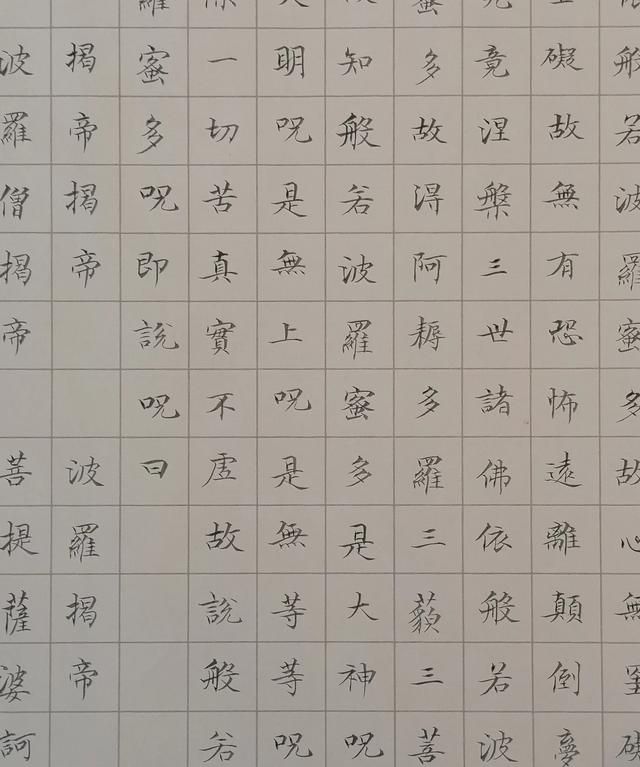 般若波羅蜜多故心無罣礙
礙故無有恐怖遠離顛倒夢
究竟涅槃三世諸佛依般若波
蜜多故得阿耨多羅三藐三菩
知般若波羅蜜多是大神呪
大明呪是無上呪是無等等呪
除一切苦真實不虛故說般若
羅蜜多呪即說呪曰
揭帝揭帝 波羅揭帝
波羅僧揭帝 菩提薩婆訶